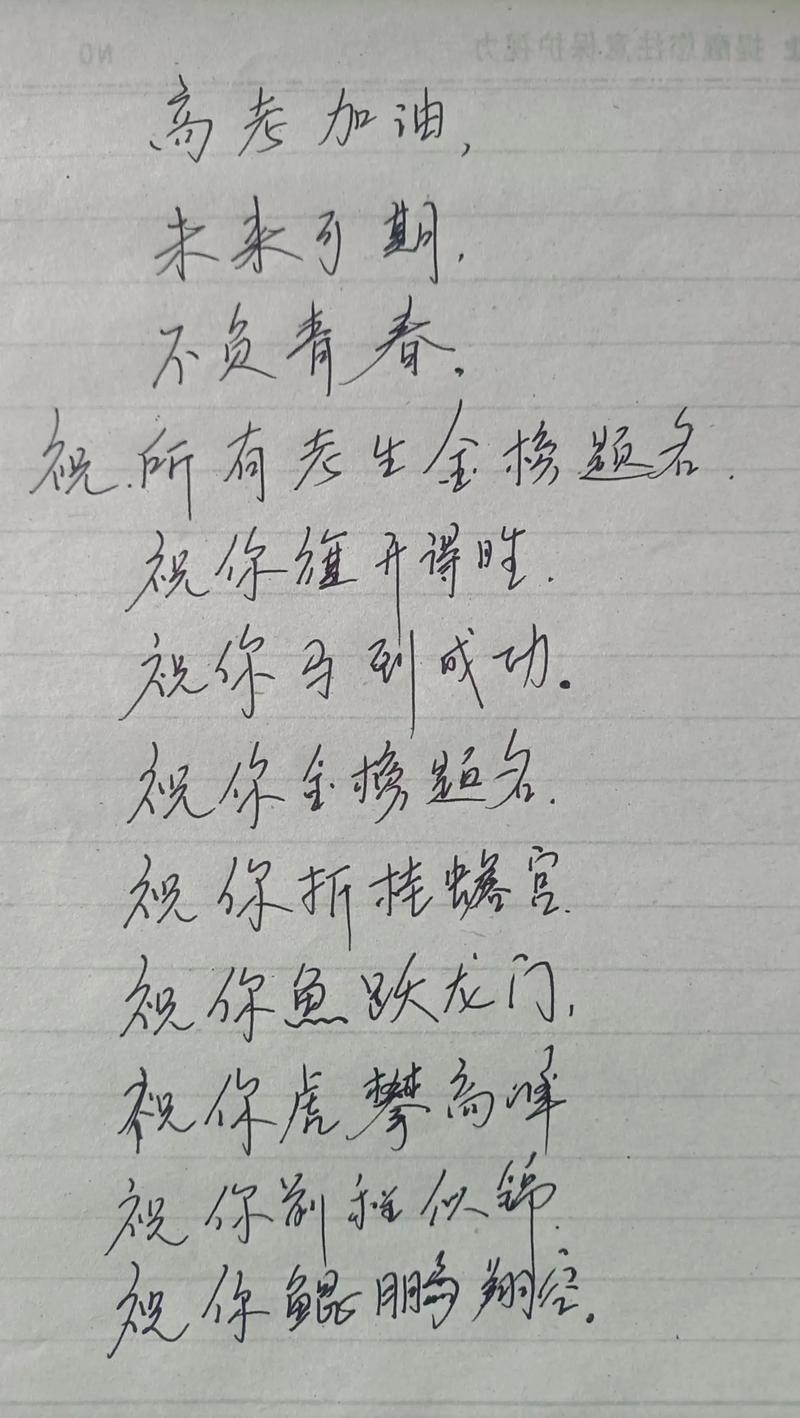 高考加油，
未来可期，
不负青春。
祝所有考生金榜题名．
祝你旌开得胜．
祝你马到成功。
祝你金榜题名．
祝你折桂蟾宫．
祝你鱼跃龙门，
祝你虎攀高峰
祝你前程似锦．
祝你鲲鹏翔空。